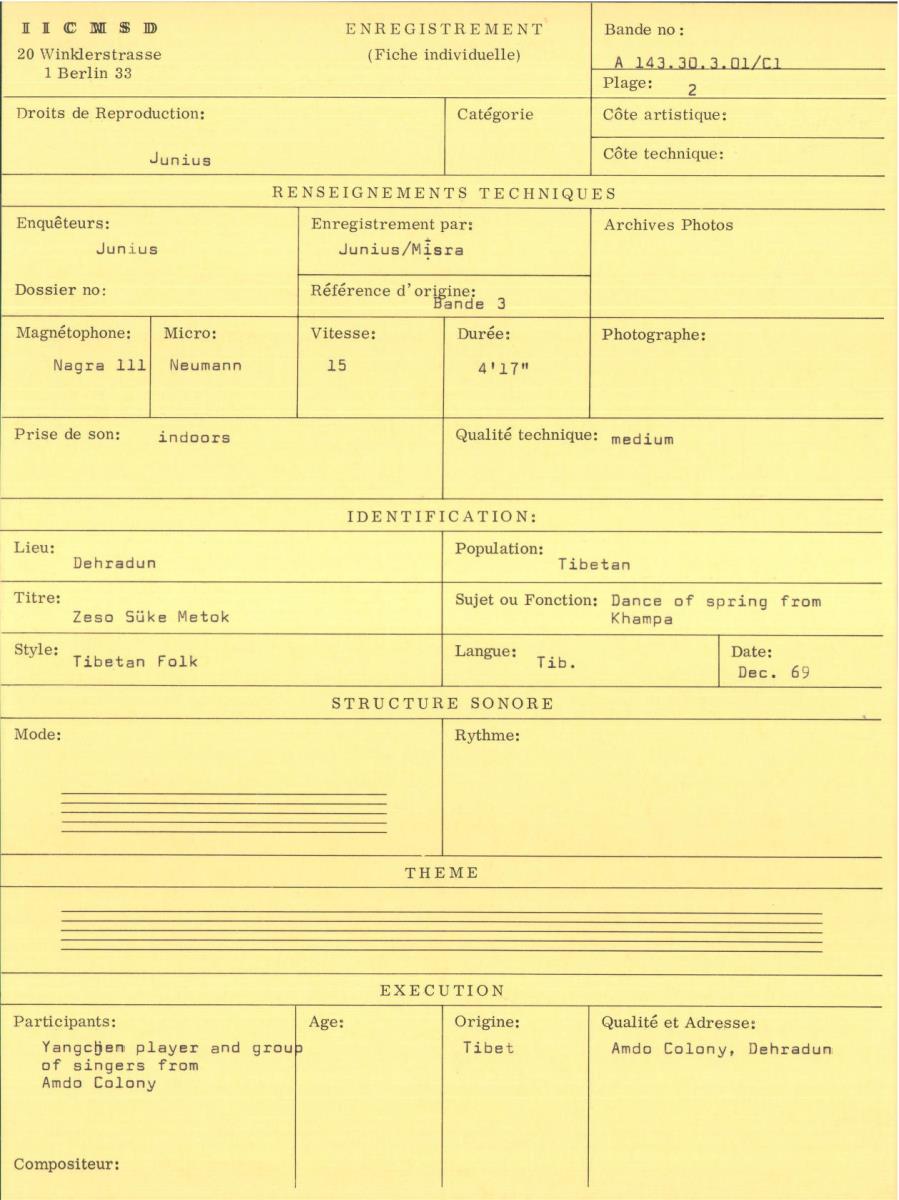 IICMSD
20 Winklerstrasse
1 Berlin 33
ENREGISTREMENT
(Fiche individuelle)
Bande no :
A 143.30.3.01/Cl
Plage: 2
Droits de Reproduction:
Junius
Catégorie
Côte artistique:
Côte technique:
RENSEIGNEMENTS TECHNIQUES
Enquêteurs:
Junius
Dossier no:
Enregistrement par:
Junius/Misra
Référence d'origine:
Bande 3
Archives Photos
Magnétophone:
Nagra lll
Micro:
Neumann
Vitesse:
15
Durée:
4'17"
Photographe:
Prise de son: indoors
Qualité technique: medium
IDENTIFICATION:
Lieu:
Dehradun
Population:
Tibetan
Titre:
Zeso Süke Metok
Sujet ou Fonction: Dance of spring from
Khampa
Style:
Tibetan Folk
Langue:
Tib.
Date:
Dec. 69
STRUCTURE SONORE
Mode:
Rythme:
THEME
EXECUTION
Participants:
Yangchen player and group
of singers from
Amdo Colony
Compositeur:
Age:
Origine:
Tibet
Qualité et Adresse:
Amdo Colony, Dehradun